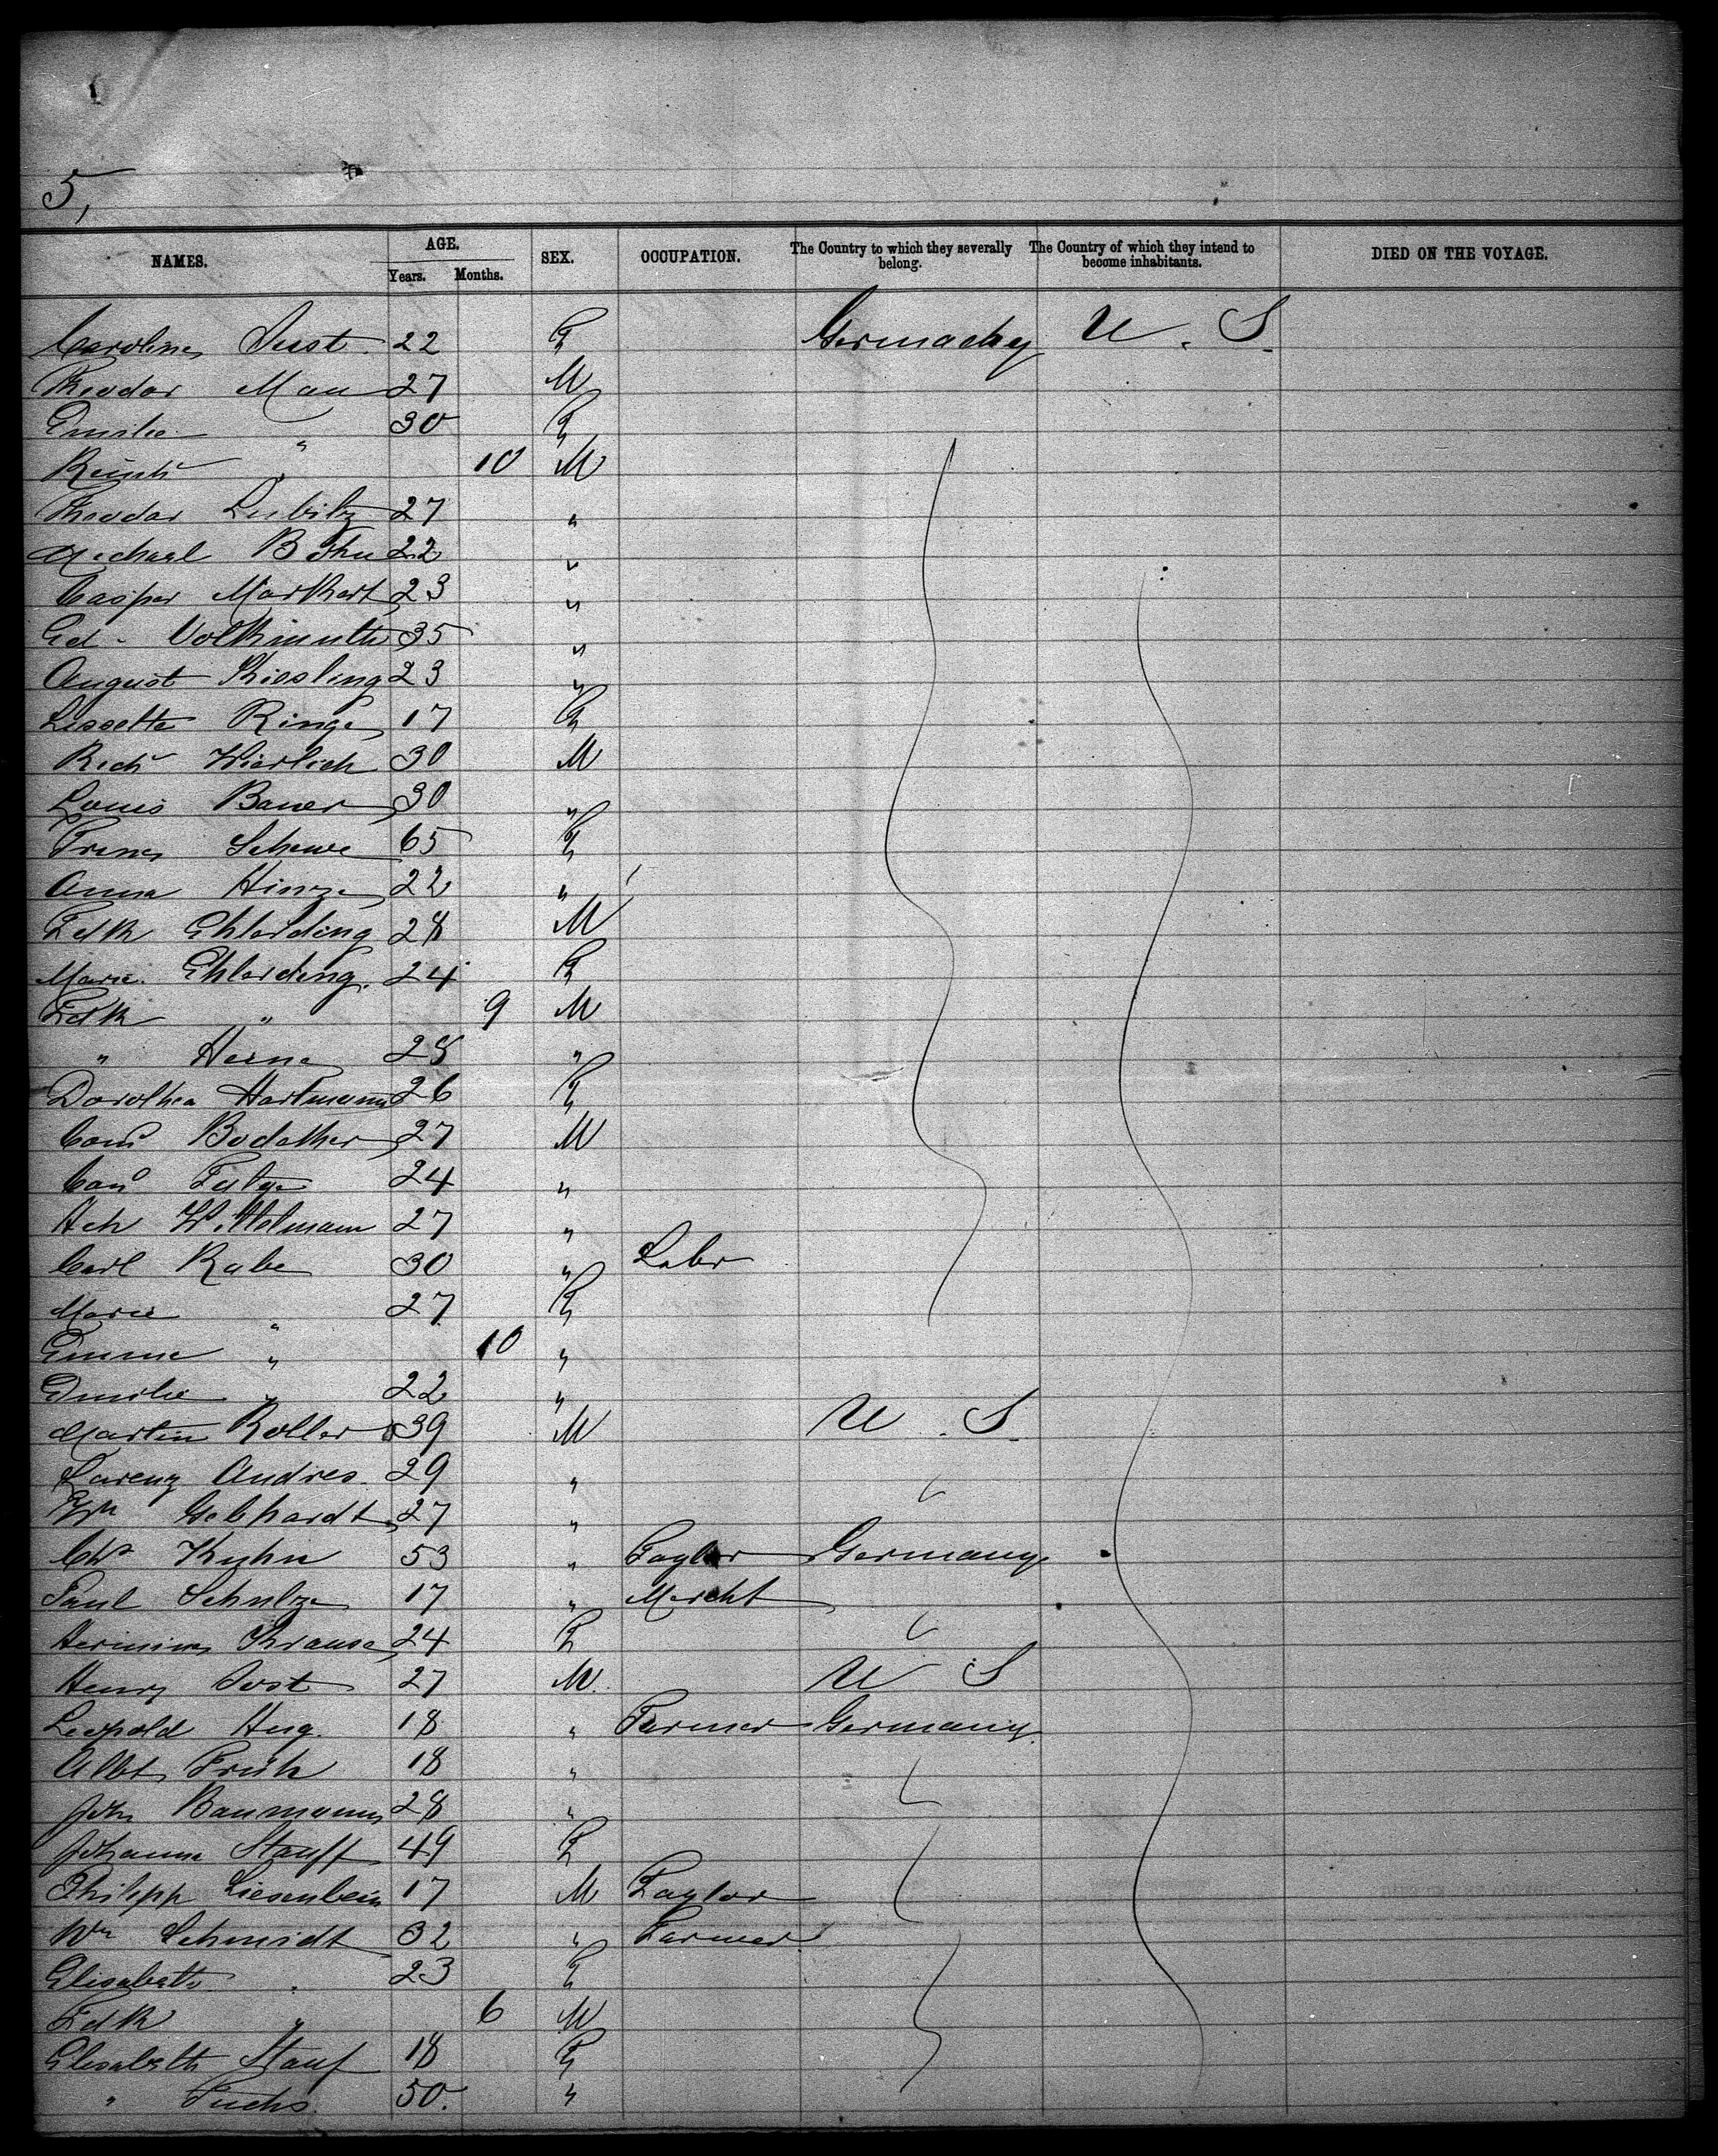 5,
NAMES. AGE. SEX. OCCUPATION. The Country to which they severally belong. The Country of which they intend to become inhabitants. DIED ON THE VOYAGE.
Years. Months.
Caroline Just 22 F Germany U. S.
Theodor Mau 27 M
Emilie " 30 F
Reinh " 10 M
Theodor 27 "
Michael Böhn 22 "
Casper Markert 23 "
Ed. Volkmuth 35 "
August Kiesling 23 "
Lissette Ringe 17 F
Rich Wierlich 30 M
Louis Bauer 30 "
Schewe 65 F
Anna Hinze 22 "
Fdk Ehlerding 28 M
Marie Ehlerding. 24 F
Fdk " 9 M
" Herne 28 "
Dorothea Hartmann 26 F
27 M
24 "
Hch Wittelmann 27 "
Carl Rabe 30 " Labr
Marie " 27 F
Emma " 10 "
Emilie " 22 "
Martin Roller 39 M U. S.
Lorenz Andres 29 "
Gebhardt 27 "
Chs Kuhn 53 " Taylor Germany
Paul Schulze 17 " Mercht
Hermine Krause 24 F
Henry Jost 27 M U S
Leopold Hug. 18 " Farmer Germany.
Albt Früh 18 "
John Baumann 28 "
Johanna Stauff 49 F
Philipp Liesenbein 17 M Taylor
Wm Schmidt 32 " Farmer
Elisabeth " 23 F
Fdk " 6 M
Elisabeth Stauf 18 F
" Fuchs 50. "